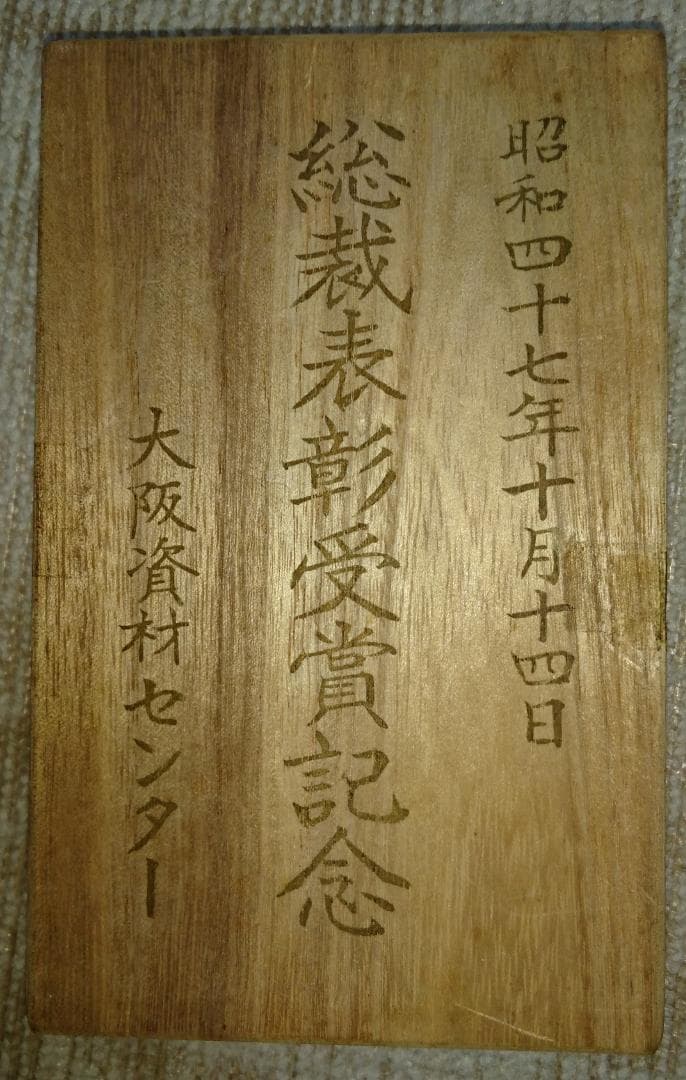 昭和四十七年十月十四日
総裁表彰受賞記念
大阪資材センター